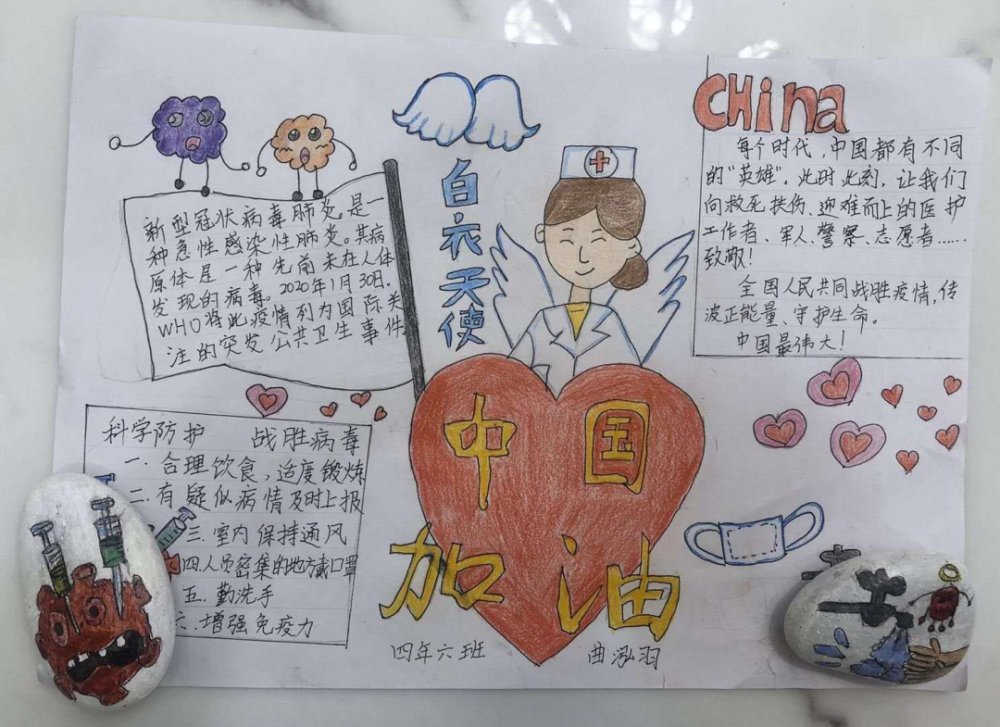 新型冠状病毒肺炎。是一
种急性感染性肺炎。其病
原体是一种先前未在人体
发现的病毒。2020年1月30日，
WHO将此疫情列为国际关
注的突发公共卫生事件
白衣天使
CHina
每个时代，中国都有不同
的“英雄”。此时此刻，让我们
向救死扶伤、迎难而上的医护
工作者、军人、警察、志愿者……
致敬！
全国人民共同战胜疫情，传
波正能量、守护生命。
中国最伟大！
科学防护 战胜病毒
一、合理饮食，适度锻炼
二、有疑似病情及时上报
三、室内保持通风
四、人员密集的地方戴口罩
五、勤洗手
六、增强免疫力
中国
加油
四年六班 曲泓羽